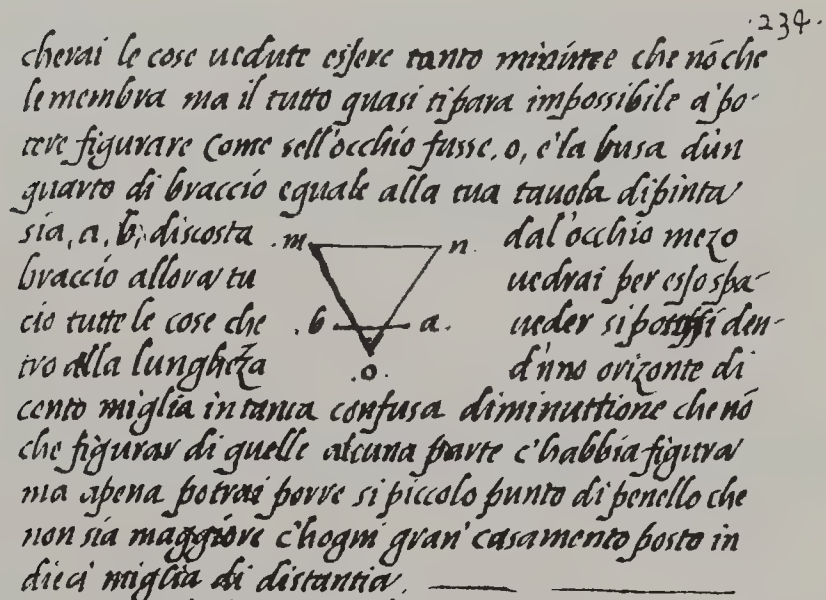 .234.
cherai le cose uedute essere tanto minime che nó che
le membra ma il tutto quasi ti para impossibile á po-
tere figurare Come sell'occhio fusse, o, e la busa dún
quarto di braccio equale alla tua tauola dipinta
sia, a, b, discosta .m n. dal'occhio mezo
braccio allora tu uedrai per esso spa-
cio tutte le cose che .b a. ueder si den-
tro alla lungheza .o. d'uno orizonte di
cento miglia in tanta confusa diminuttione che nó
che figurar di quelle alcuna parte c'habbia figura
ma apena potrai porre si piccolo punto di penello che
non sia maggiore c'hogni gran' casamento posto in
dieci miglia di distantia.